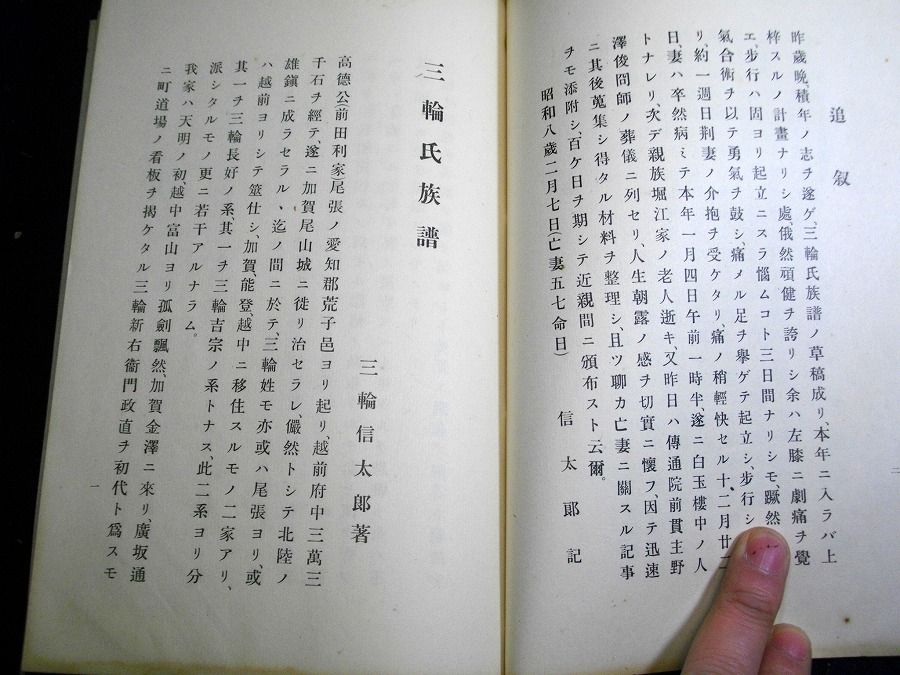 追敍
昨歲晩、積年ノ志ヲ遂ゲ、三輪氏族譜ノ草稿成リ、本年ニ入ラバ上
梓スルノ計畫ナリシ處、俄然頑健ヲ誇リシ余ハ左膝ニ劇痛ヲ覺
エ、步行ハ固ヨリ起立ニスラ惱ムコト三日間ナリシモ、蹶然
氣合術ヲ以テ勇氣ヲ鼓シ、痛メル足ヲ擧ゲテ起立シ、步行シ
リ、約一週日荆妻ノ介抱ヲ受ケタリ、痛ノ稍輕快セル十二月廿二
日、妻ハ卒然病ミテ本年一月四日午前一時半、遂ニ白玉樓中ノ人
トナレリ、次デ親族堀江家ノ老人逝キ、又昨日ハ傳通院前貫主野
澤俊冏師ノ葬儀ニ列セリ、人生朝露ノ感ヲ切實ニ懷フ、因テ迅速
ニ其後蒐集シ得タル材料ヲ整理シ、且ツ聊カ亡妻ニ關スル記事
ヲモ添附シ、百ケ日ヲ期シテ近親間ニ頒布スト云爾。
昭和八歲二月七日(亡妻五七命日)
信太郞記
二
三輪氏族譜
三輪信太郞著
高德公(前田利家)尾張ノ愛知郡荒子邑ヨリ起リ、越前府中三萬三
千石ヲ經テ、遂ニ加賀尾山城ニ徙リ治セラレ、儼然トシテ北陸ノ
雄鎭ニ成ラセラル、迄ノ間ニ於テ、三輪姓モ亦或ハ尾張ヨリ、或
ハ越前ヨリシテ筮仕シ、加賀、能登、越中ニ移住スルモノ二家アリ、
其一ヲ三輪長好ノ系、其一ヲ三輪吉宗ノ系トナス、此二系ヨリ分
派シタルモノ更ニ若干アルナラム。
我家ハ天明ノ初、越中富山ヨリ孤劍飄然、加賀金澤ニ來リ、廣坂通
ニ町道場ノ看板ヲ揭ケタル三輪新右衞門政直ヲ初代ト爲スモ
一